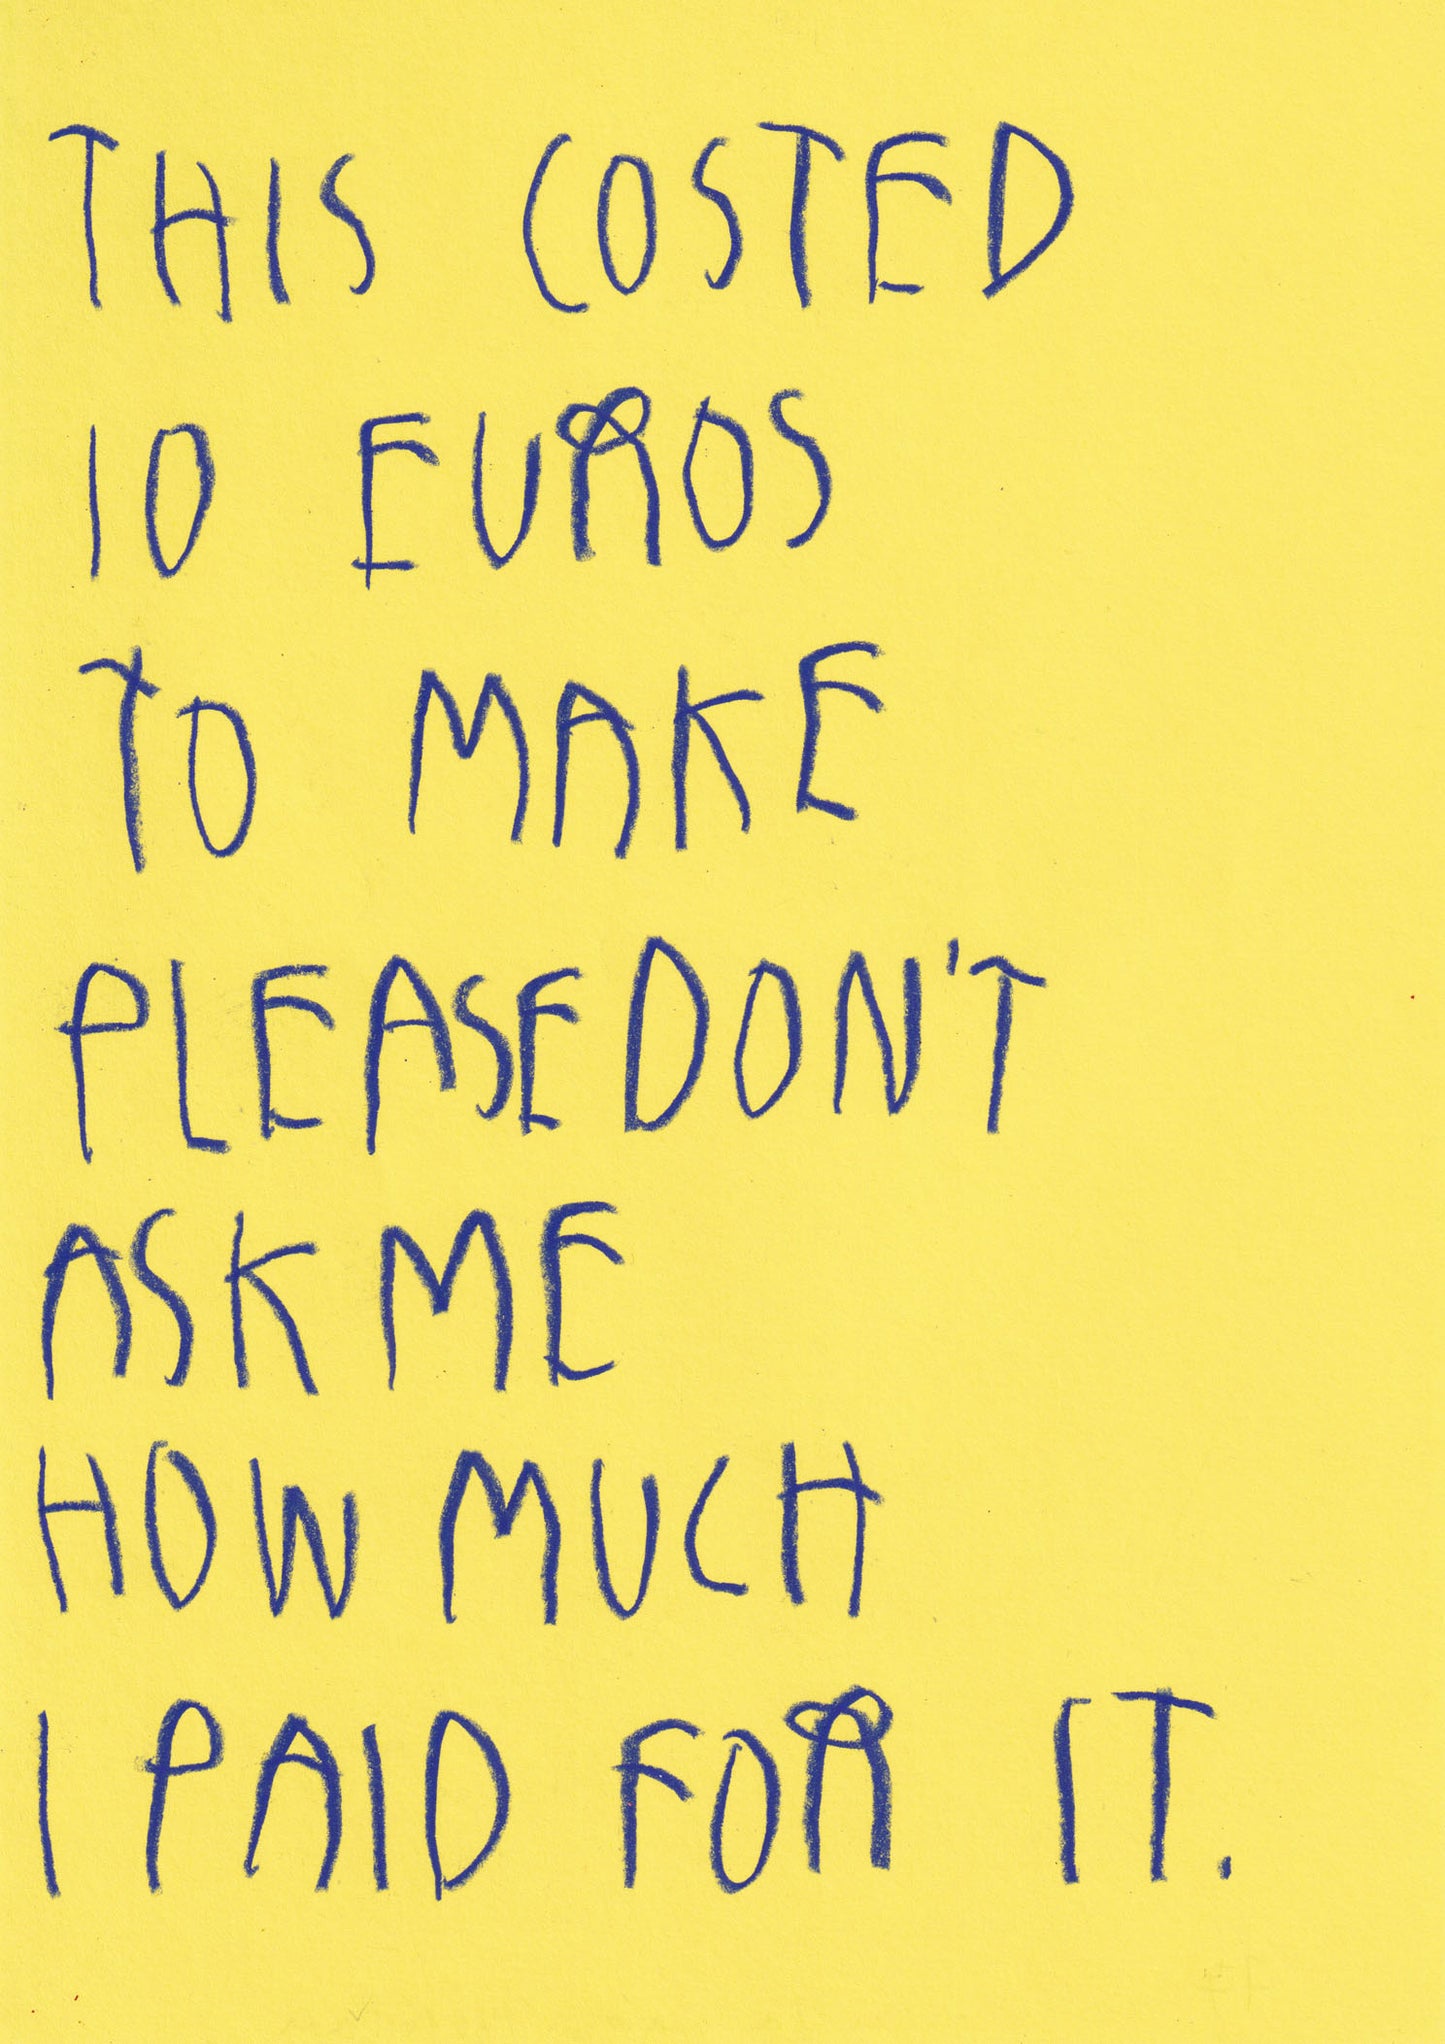 THIS COSTED
10 EUROS
TO MAKE
PLEASE DON'T
ASK ME
HOW MUCH
I PAID FOR IT.